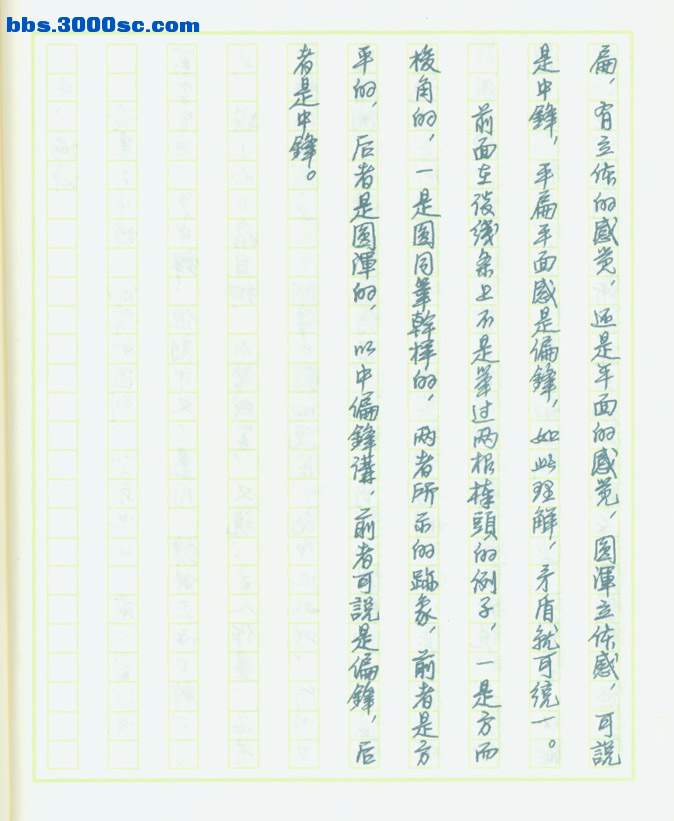 bbs.3000sc.com
扁，有立体的感觉，还是平面的感觉，圆渾立体感，可説
是中鋒，平扁平面感是偏鋒，如此理解，矛盾就可统一。
前面在後线条上不是举过两根棒頭的例子，一是方而
梭角的，一是圆同筆幹様的，两者所示的跡象，前者是方
平的，后者是圆渾的，以中偏鋒講，前者可説是偏鋒，后
者是中鋒。